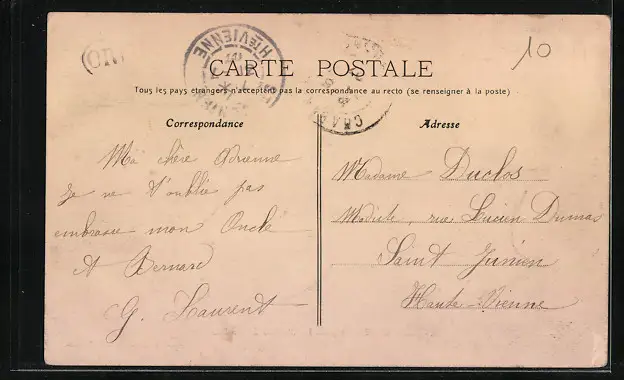 OR
Hte VIENNE
10
CARTE POSTALE
Tous les pays étrangers n'acceptent pas la correspondance au recto (se renseigner à la poste)
Correspondance
Ma chère Adrienne
Je ne t'oublie pas
embrasse mon Oncle
et Bernard
G. Laurent
Adresse
Madame Duclos
Modiste, rue Lucien Dumas
Saint Junien
Haute-Vienne